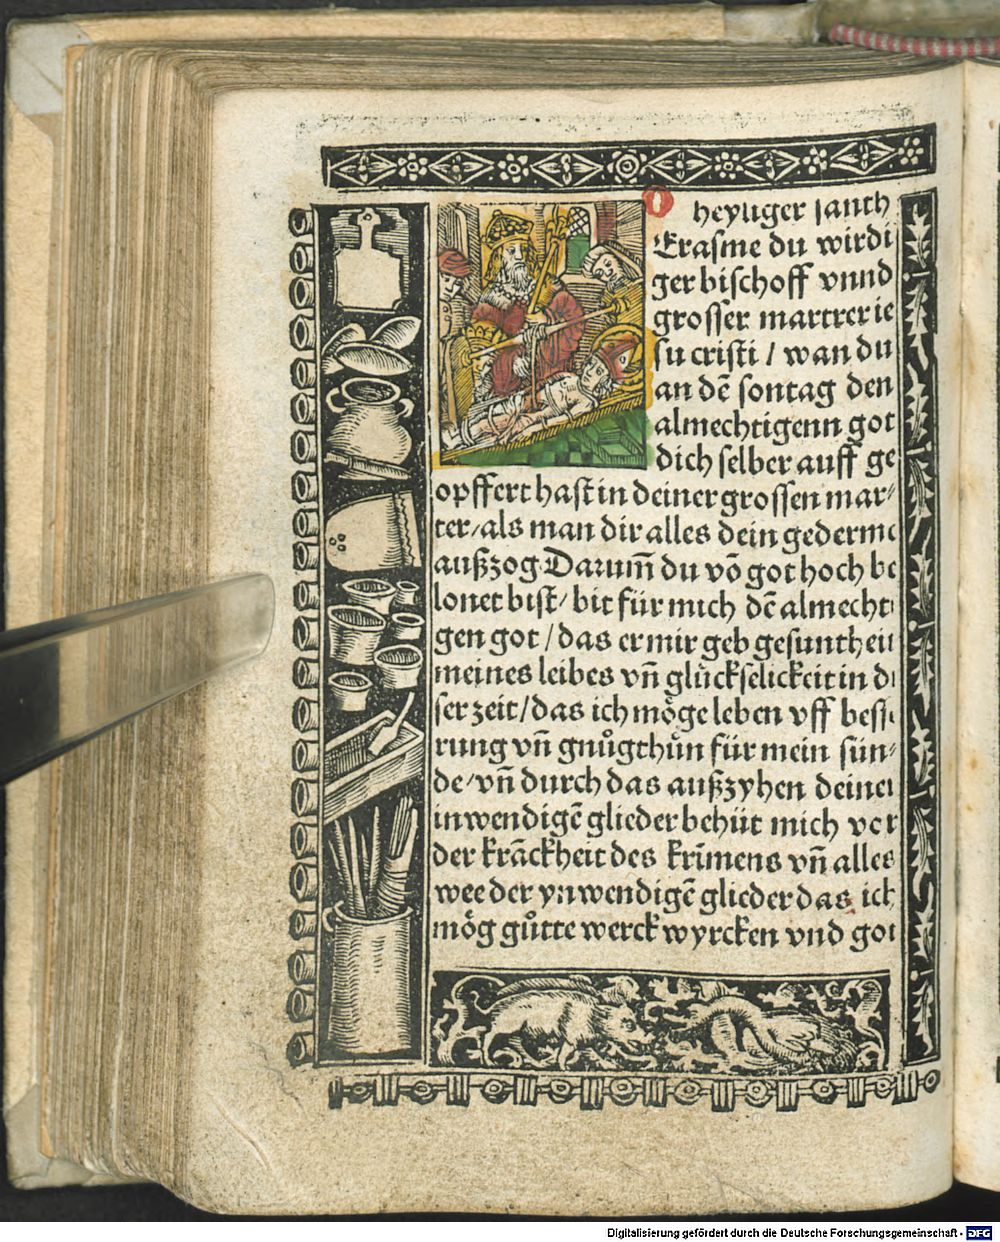 O heyliger sanch
Erasme du wirdi
ger bischoff vnnd
grosser martrer ie
su cristi / wan du
an dē sontag den
almechtigenn got
dich selber auff ge
opffert hast in deiner grossen mar⸗
ter/als man dir alles dein gederme
außzog Darum̄ du vō got hoch be
lonet bist/ bit für mich dē almechti
gen got /das er mir geb gesuntheit
meines leibes vn̄ glückselickeit in di
ser zeit/das ich möge leben vff besse
rung vn̄ gnůgthůn für mein sün⸗
de/vn̄ durch das außzyhen deiner
inwendigē glieder behüt mich vor
der krāckheit des krīmens vn̄ alles
wee der ynwendigē glieder das ich
mög gůtte werck wyrcken vnd got
Digitalisierung gefördert durch die Deutsche Forschungsgemeinschaft - DFG